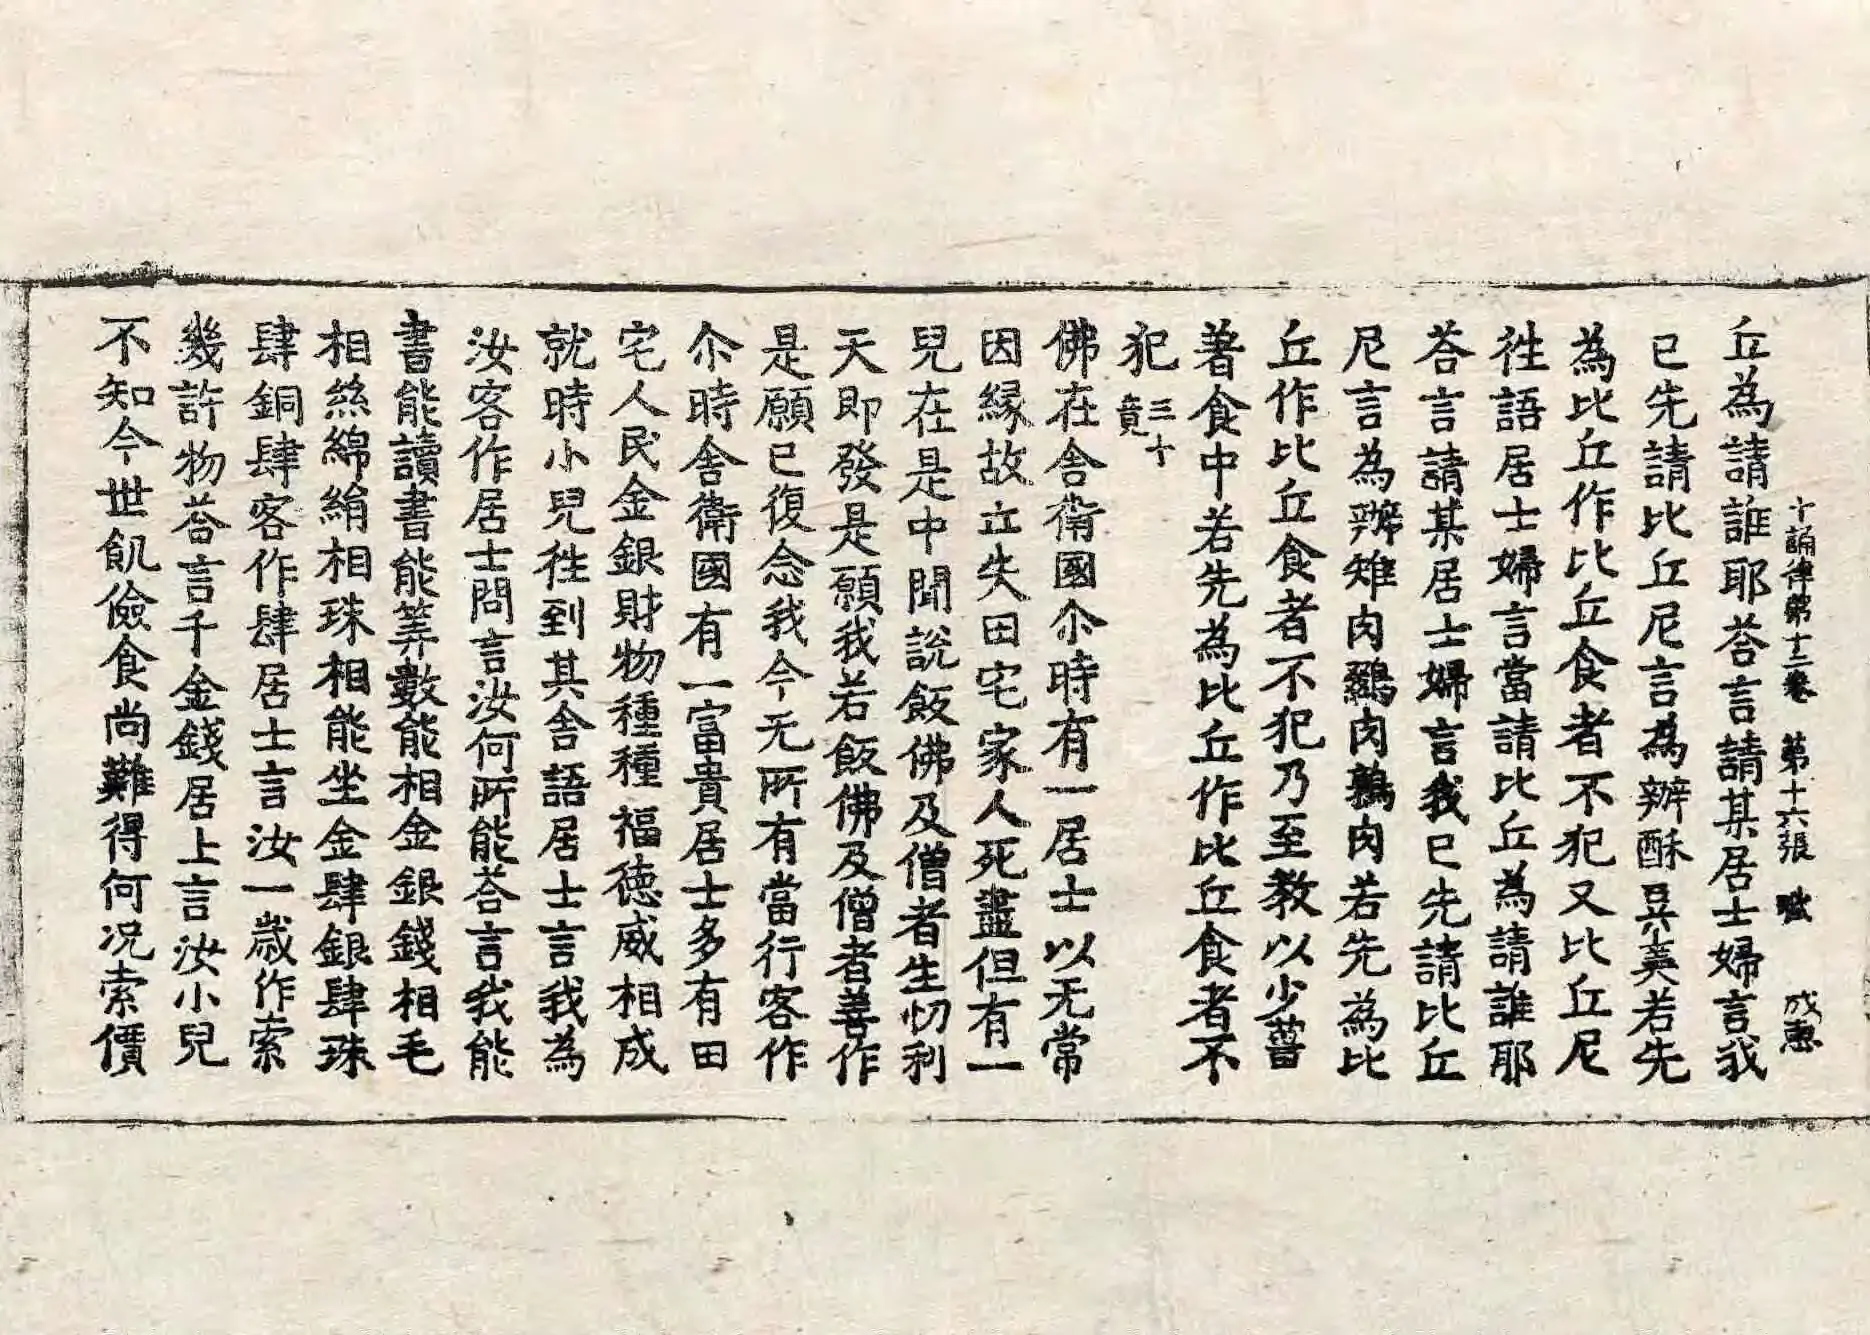 十誦律第十二卷 第十六張 賦 成惠
丘為請誰耶荅言請某居士婦言我
已先請比丘尼言為辦酥豆羹若先
為比丘作比丘食者不犯又比丘尼
徃語居士婦言當請比丘為請誰耶
荅言請某居士婦言我已先請比丘
尼言為辦雉肉鷄肉鶉肉若先為比
丘作比丘食者不犯乃至教以少薑
著食中若先為比丘作比丘食者不
犯 三十竟
佛在舍衛國尒時有一居士以无常
因緣故亡失田宅家人死盡但有一
兒在是中聞說飯佛及僧者生忉利
天即發是願我若飯佛及僧者善作
是願已復念我今无所有當行客作
尒時舍衛國有一富貴居士多有田
宅人民金銀財物種種福徳威相成
就時小兒徃到其舍語居士言我為
汝客作居士問言汝何所能荅言我能
書能讀書能筭數能相金銀錢相毛
相絲綿絹相珠相能坐金肆銀肆珠
肆銅肆客作肆居士言汝一歲作索
幾許物荅言千金錢居士言汝小兒
不知今世飢儉食尚難得何况索價